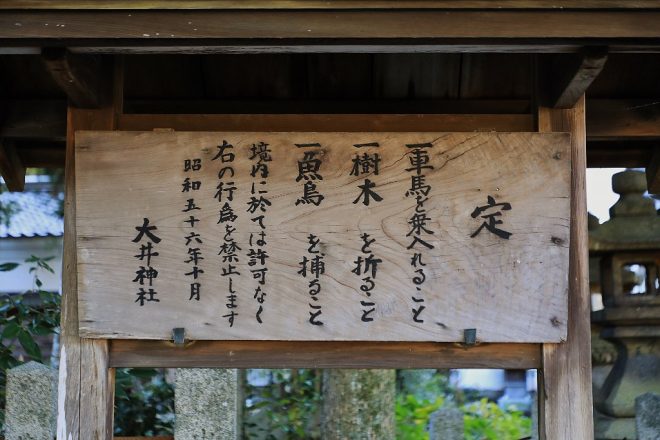 定
一車馬を乗入れること
一樹木を折ること
一魚鳥を捕ること
境内に於ては許可なく
右の行為を禁止します
昭和五十六年十月
大井神社